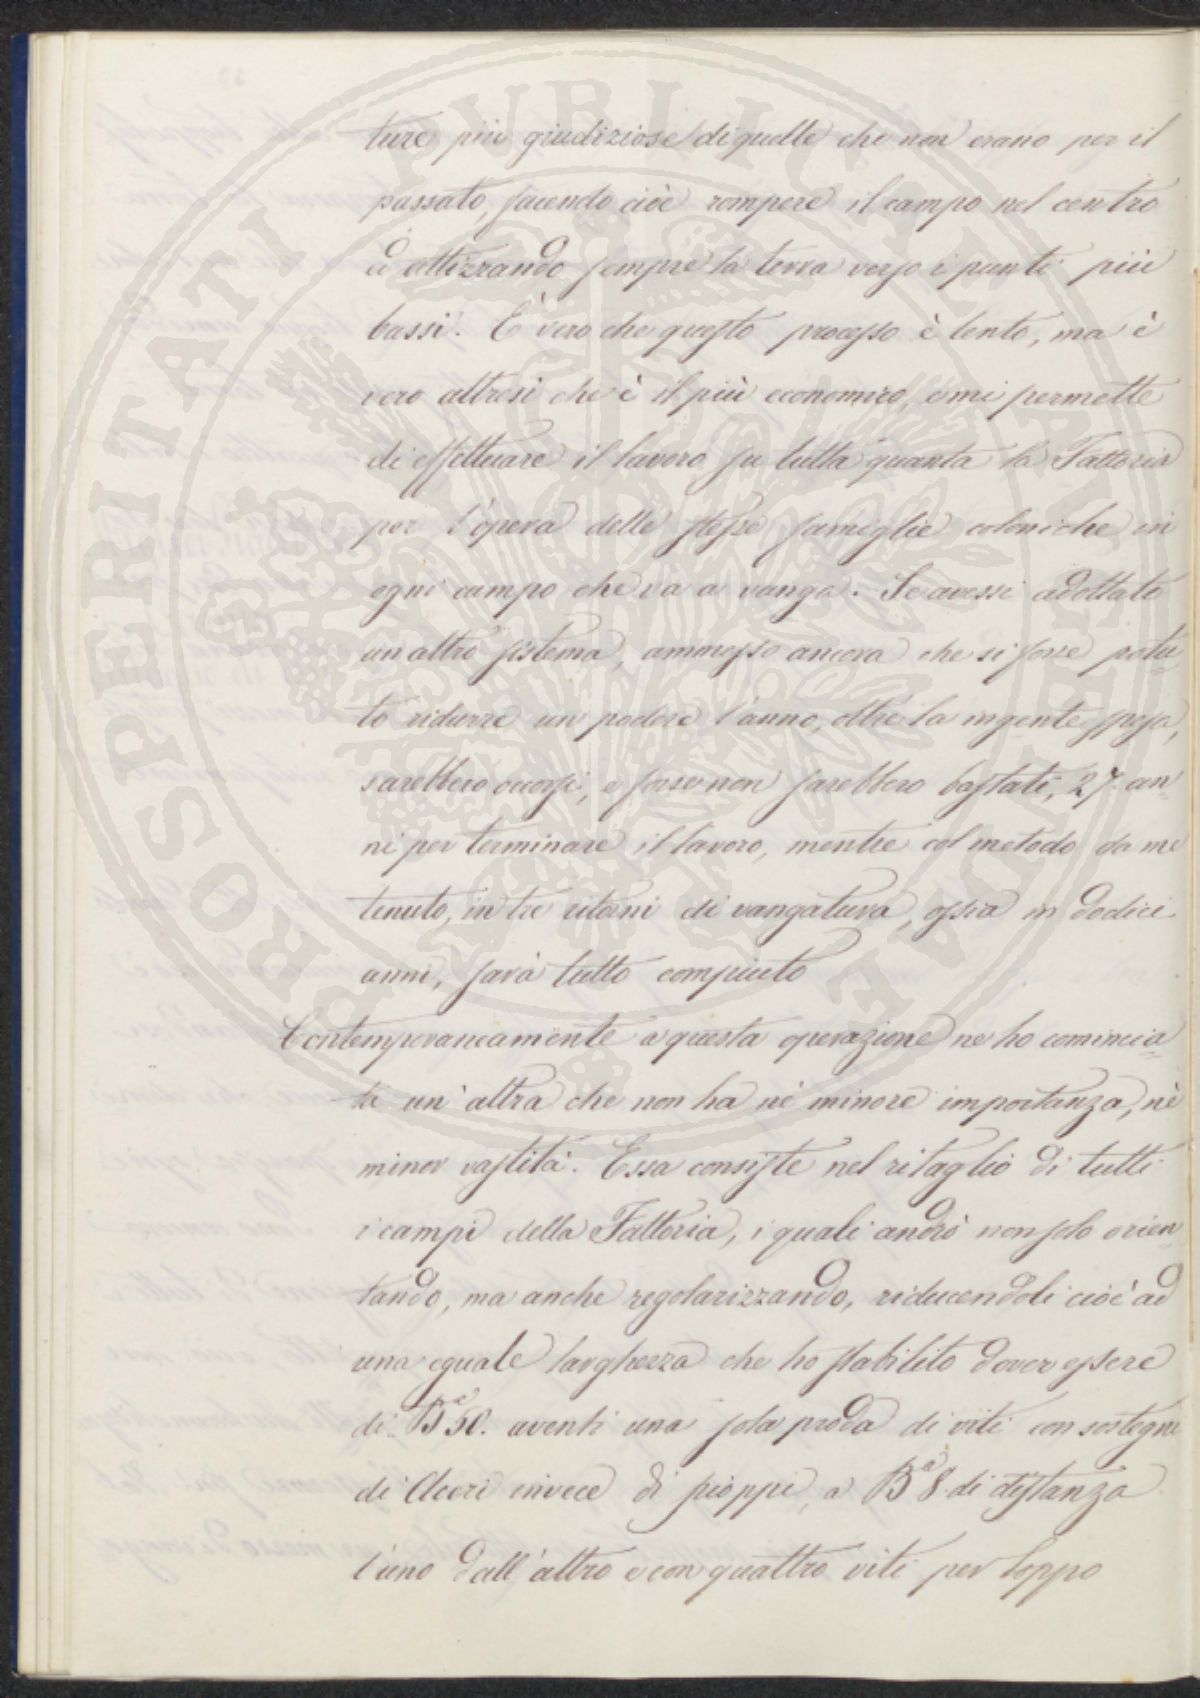 ture più giudiziose di quelle che non erano per il
passato, facendo cioè rompere il campo nel centro
ed attizzando sempre la terra verso i punti più
bassi. È vero che questo processo è lento, ma è
vero altresì che è il più economico, e mi permette
di effettuare il lavoro su tutta quanta la Fattoria
per l'opera delle stesse famiglie coloniche in
ogni campo che va a vanga. Se avessi adottato
un altro sistema, ammesso ancora che si fosse potu=
to ridurre un podere l'anno, oltre la ingente spesa,
sarebbero occorsi, e forse non sarebbero bastati, 27 an=
ni per terminare il lavoro, mentre col metodo da me
tenuto, in tre ritorni di vangatura, ossia in dodici
anni, sarà tutto compiuto
Contemporaneamente a questa operazione ne ho comincia=
ta un'altra che non ha nè minore importanza, nè
minor vastità. Essa consiste nel ritaglio di tutti
i campi della Fattoria, i quali andrò non solo orien=
tando, ma anche regolarizzando, riducendoli cioè ad
una eguale larghezza che ho stabilito dover essere
di Bᵃ 50. aventi una sola proda di viti con sostegni
di Aceri invece di pioppi, a Bᵃ 8. di distanza
l'uno dall'altro e con quattro viti per loppo
PROSPERITATI PVBLICAE AVGENDAE